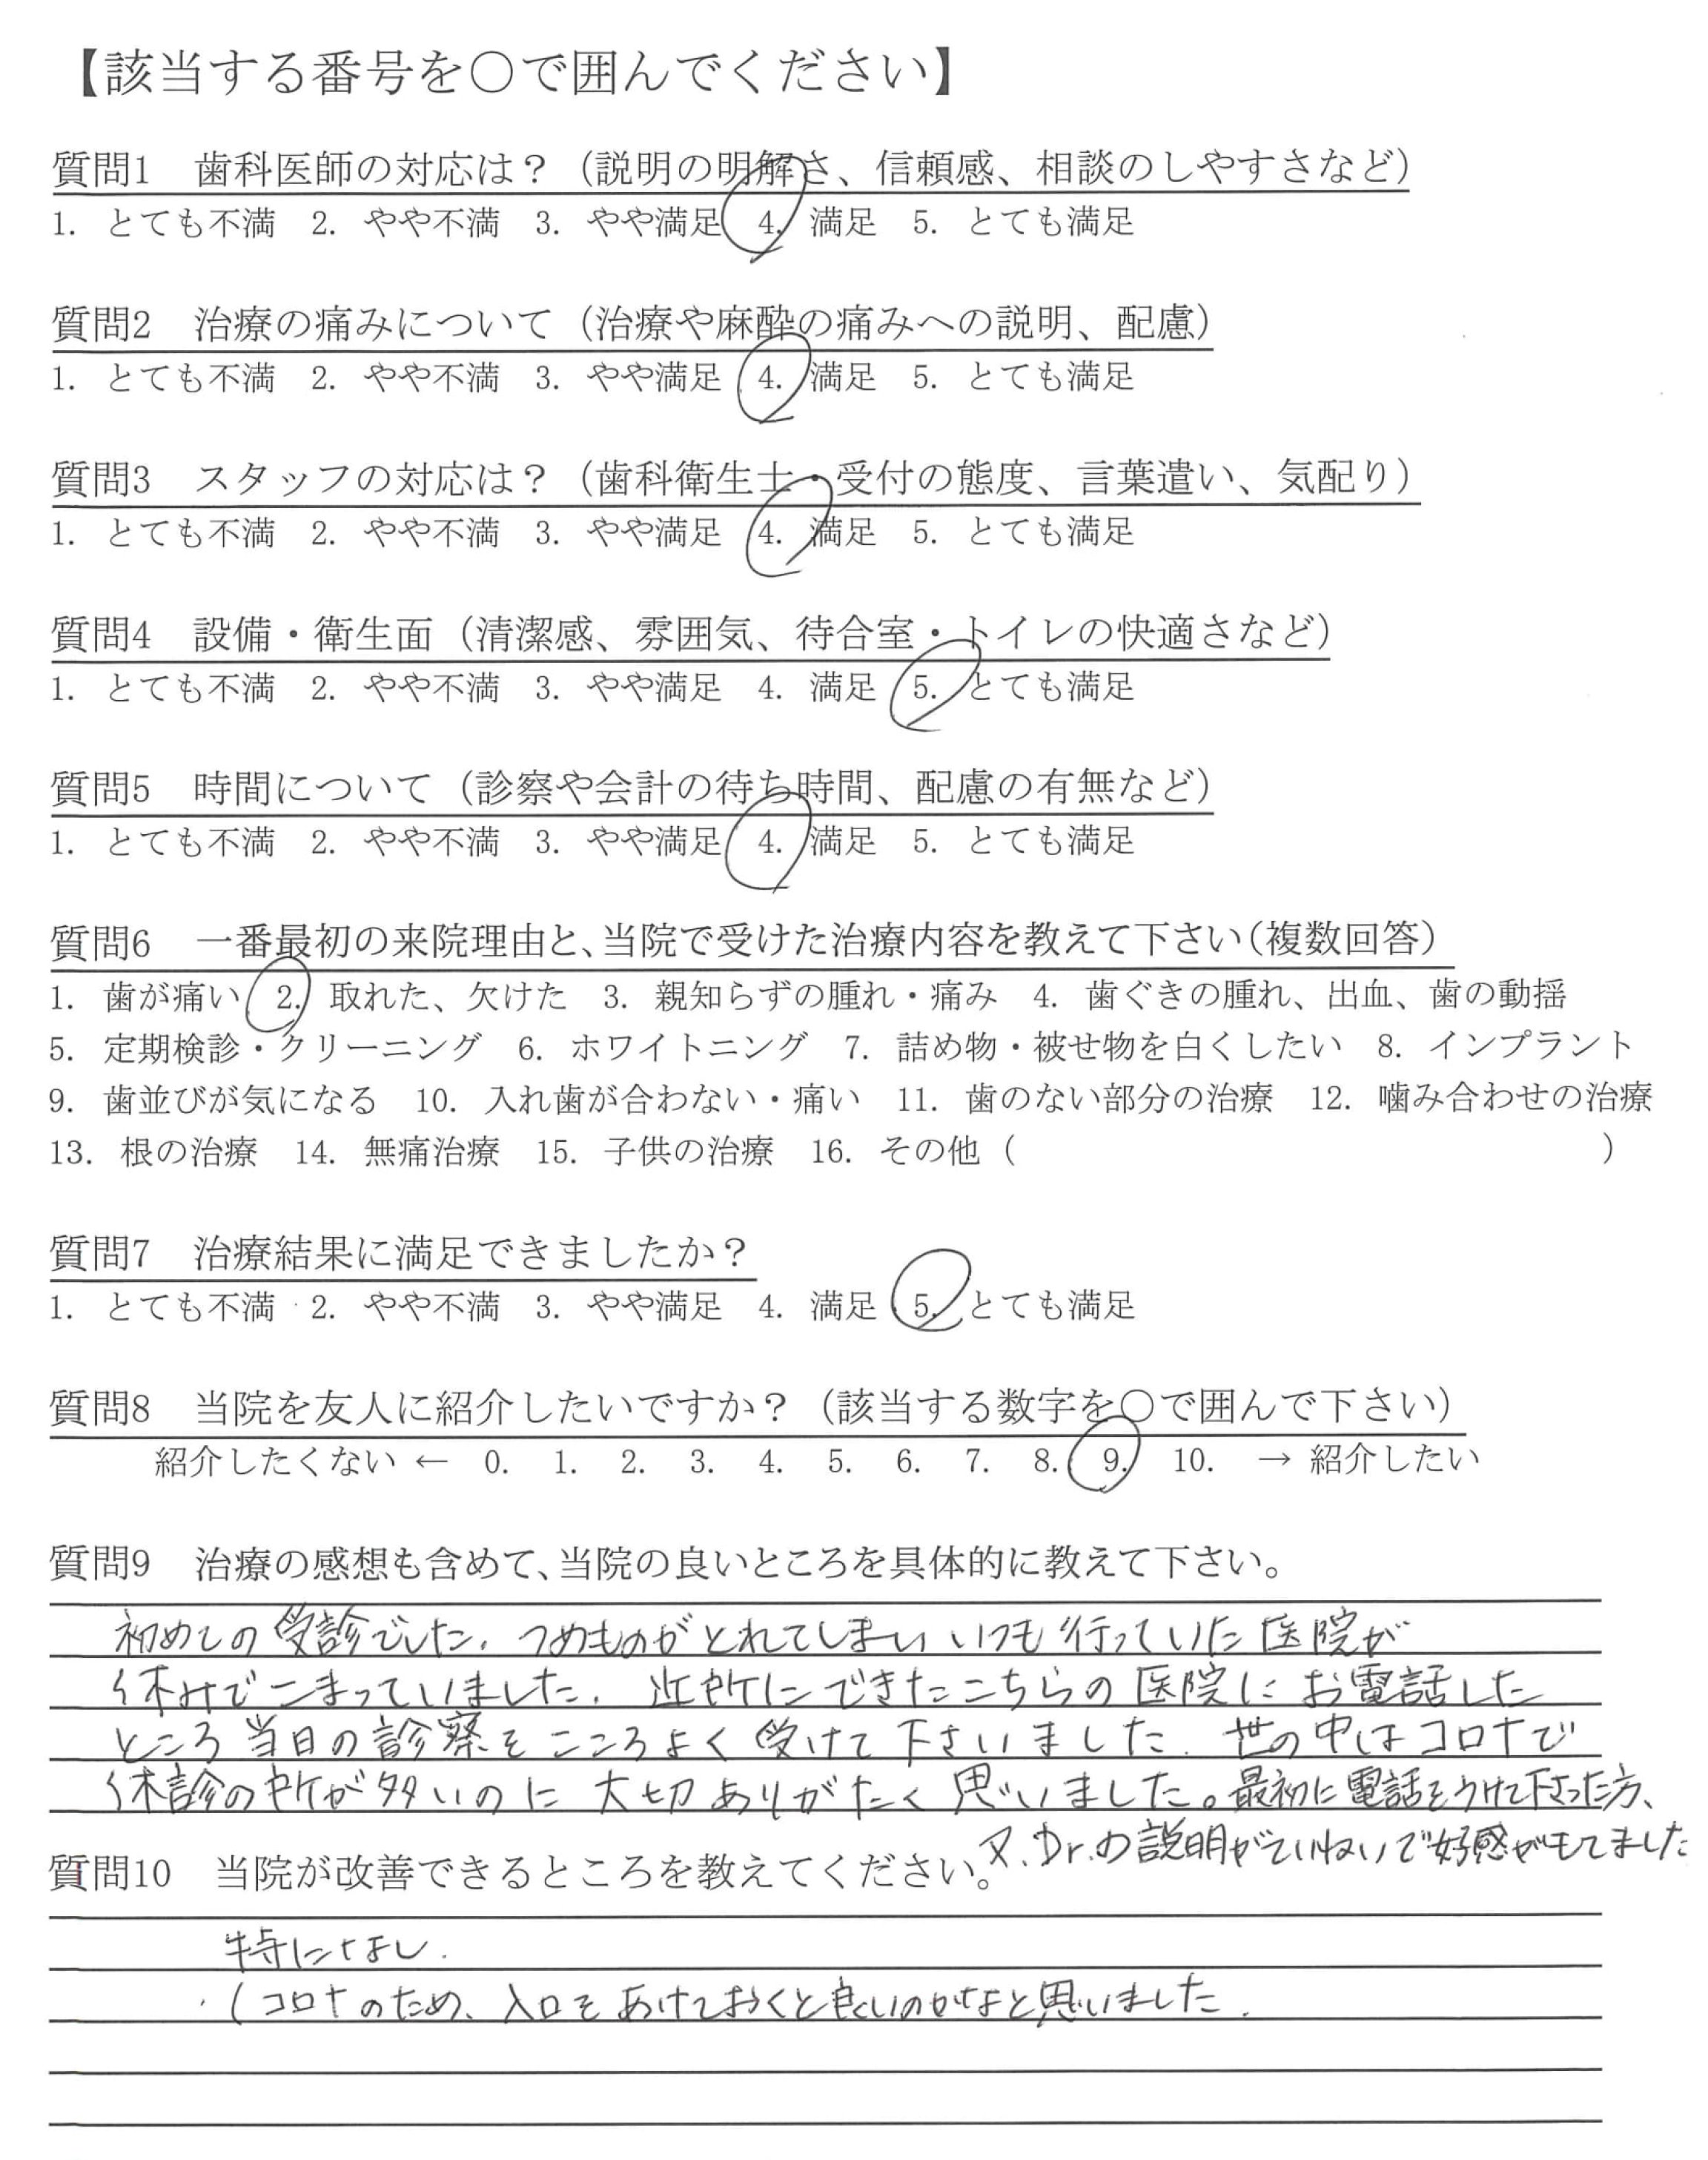 【該当する番号を○で囲んでください】
質問1　歯科医師の対応は？（説明の明解さ、信頼感、相談のしやすさなど）
1. とても不満　2. やや不満　3. やや満足　4. 満足　5. とても満足
質問2　治療の痛みについて（治療や麻酔の痛みへの説明、配慮）
1. とても不満　2. やや不満　3. やや満足　4. 満足　5. とても満足
質問3　スタッフの対応は？（歯科衛生士・受付の態度、言葉遣い、気配り）
1. とても不満　2. やや不満　3. やや満足　4. 満足　5. とても満足
質問4　設備・衛生面（清潔感、雰囲気、待合室・トイレの快適さなど）
1. とても不満　2. やや不満　3. やや満足　4. 満足　5. とても満足
質問5　時間について（診察や会計の待ち時間、配慮の有無など）
1. とても不満　2. やや不満　3. やや満足　4. 満足　5. とても満足
質問6　一番最初の来院理由と、当院で受けた治療内容を教えて下さい（複数回答）
1. 歯が痛い　2. 取れた、欠けた　3. 親知らずの腫れ・痛み　4. 歯ぐきの腫れ、出血、歯の動揺
5. 定期検診・クリーニング　6. ホワイトニング　7. 詰め物・被せ物を白くしたい　8. インプラント
9. 歯並びが気になる　10. 入れ歯が合わない・痛い　11. 歯のない部分の治療　12. 噛み合わせの治療
13. 根の治療　14. 無痛治療　15. 子供の治療　16. その他（　　　　　　　　　　）
質問7　治療結果に満足できましたか？
1. とても不満　2. やや不満　3. やや満足　4. 満足　5. とても満足
質問8　当院を友人に紹介したいですか？（該当する数字を○で囲んで下さい）
紹介したくない ← 0. 1. 2. 3. 4. 5. 6. 7. 8. 9. 10. → 紹介したい
質問9　治療の感想も含めて、当院の良いところを具体的に教えて下さい。
初めての受診でした。つめものがとれてしまい いつも行っていた医院が
休みでこまっていました。近所にできたこちらの医院にお電話した
ところ当日の診察をこころよく受けて下さいました。世の中はコロナで
休診の所が多いのに 大切ありがたく思いました。最初に電話をうけて下さった方、
又、Dr.の説明がていねいで好感がもてました
質問10　当院が改善できるところを教えてください。
特になし.
(コロナのため、入口をあけておくと良いのかなと思いました.